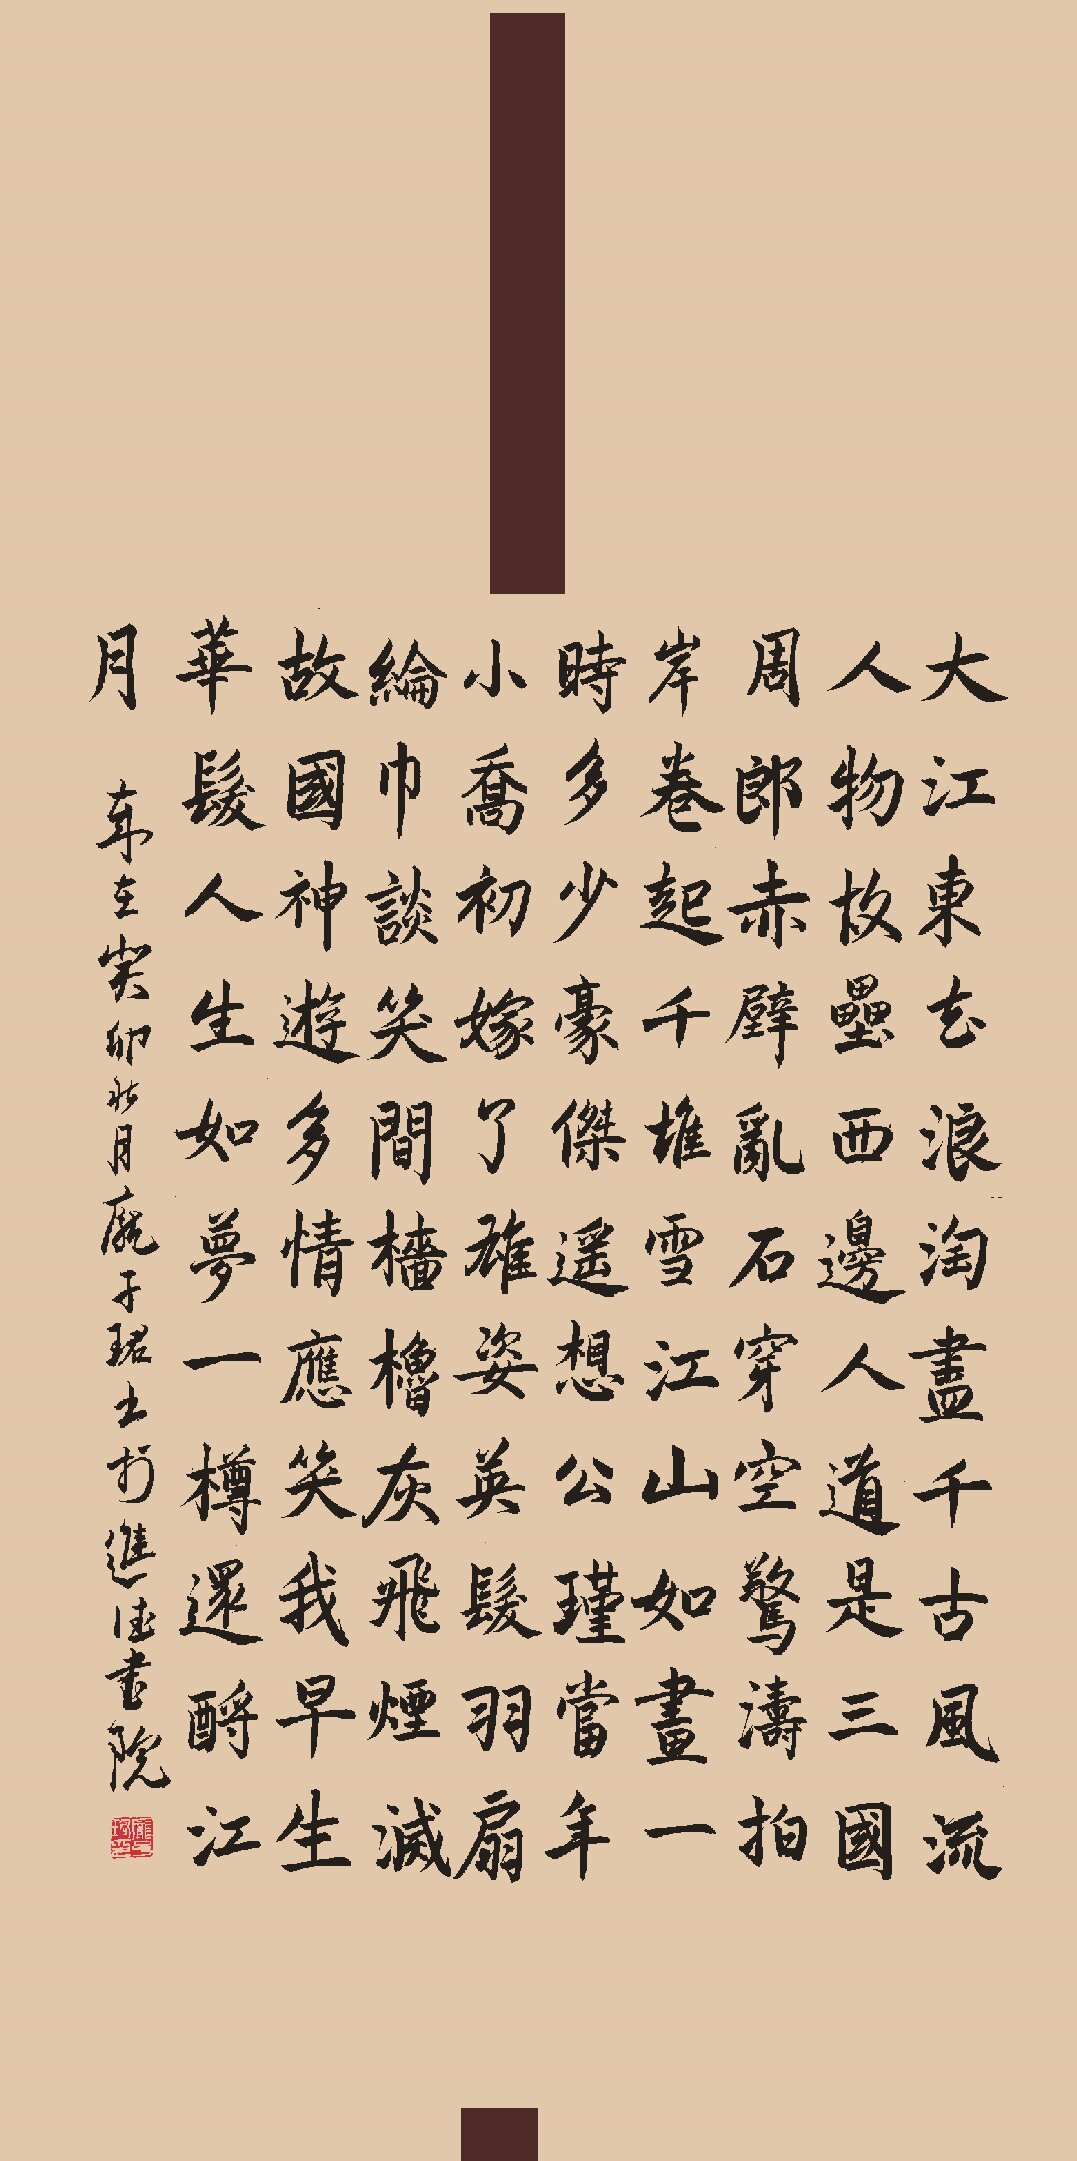 大江東去浪淘盡千古風流
人物故壘西邊人道是三國
周郎赤壁亂石穿空驚濤拍
岸卷起千堆雪江山如畫一
時多少豪傑遥想公瑾當年
小喬初嫁了雄姿英髮羽扇
綸巾談笑間檣櫓灰飛煙滅
故國神遊多情應笑我早生
華髮人生如夢一樽還酹江
月 歲在癸卯秋月龐子珺書於進德書院